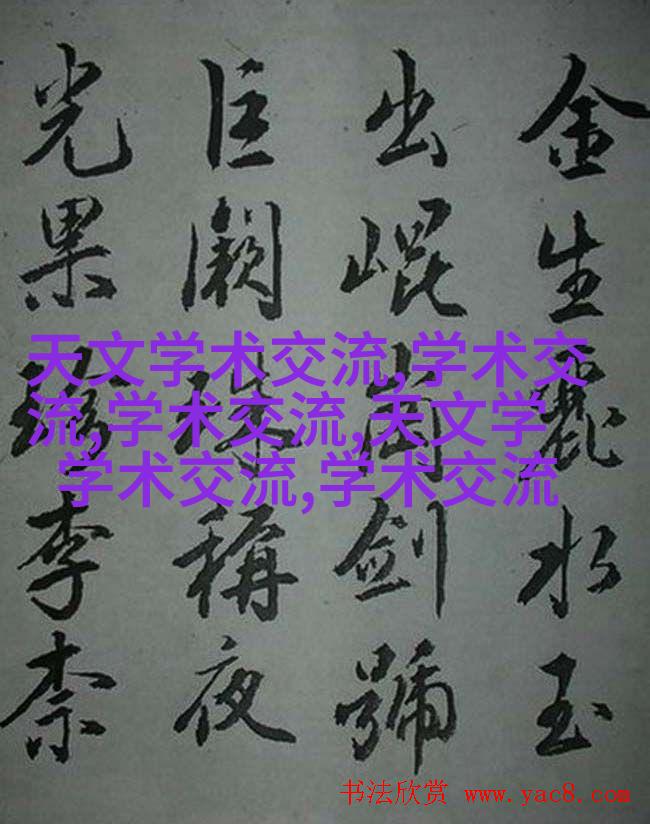 金生麗水玉
出崐崗劍號
巨闕珠稱夜
光果珍李柰
天文学术交流,学术交
流,学术交流,天文学
学术交流,学术交流
书法欣赏 www.yac8.com